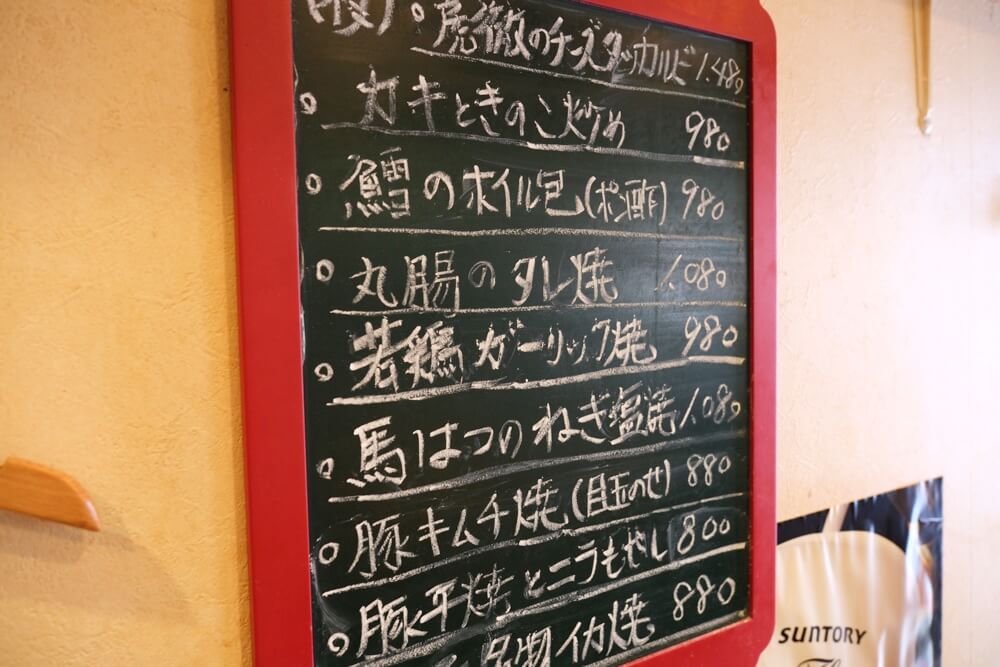 虎徹のチーズタッカルビ 1.480
カキときのこ炒め 980
鱈のホイル包(ポン酢) 980
丸腸のタレ焼 1.080
若鶏ガーリック焼 980
馬はつのねぎ塩焼 1.080
豚キムチ焼(目玉のせ) 880
豚平焼とニラもやし 800
名物イカ焼 880
SUNTORY